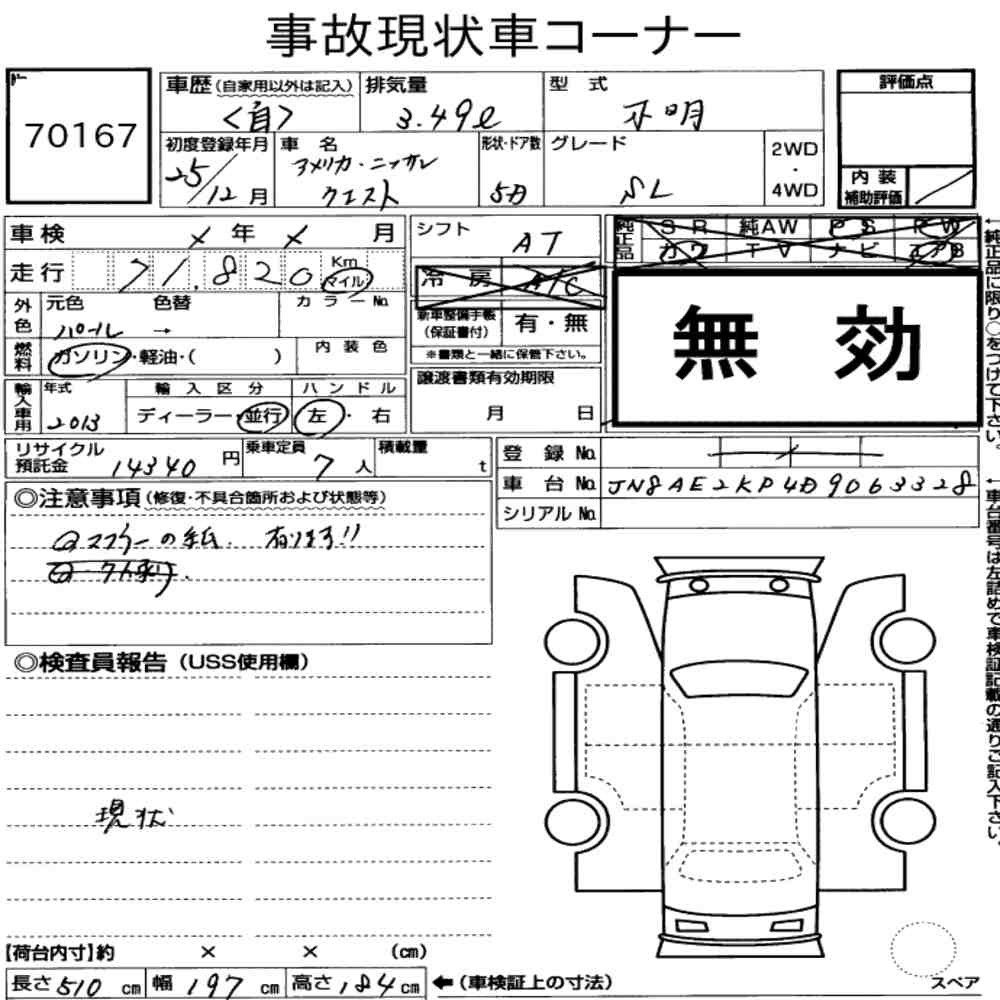 事故現状車コーナー
70167
車歴 (自家用以外は記入) 排気量 型式 評価点
<自> 3.49ℓ 不明
初度登録年月 車名 形状・ドア数 グレード 2WD・4WD 内装補助評価
25/12月 アメリカ・ニッサン クエスト 5D SL
車検 × 年 × 月 シフト AT
純正品 SR 純AW PS PW
カワ TV ナビ エアB
走行 71,820 Km マイル 冷房 A/C
外色 元色 色替 カラーNo. 新車整備手帳(保証書付) 有・無 無効
パール →
※書類と一緒に保管下さい。
燃料 ガソリン・軽油・( ) 内装色
譲渡書類有効期限
月 日
輸入車用 年式 輸入区分 ハンドル
2013 ディーラー・並行 左・右
リサイクル預託金 14340円 乗車定員 7人 積載量 t
登録No.
車台No. JN8AE2KP4D9063328
シリアルNo.
←純正品に限り○をつけて下さい。
←車台番号は左詰めで車検証記載の通りご記入下さい。
◎注意事項(修復・不具合箇所および状態等)
マフラーの紙、有ります!!
◎検査員報告(USS使用欄)
現状
【荷台内寸】約 × × (cm)
長さ510cm 幅197cm 高さ184cm ←(車検証上の寸法)
スペア